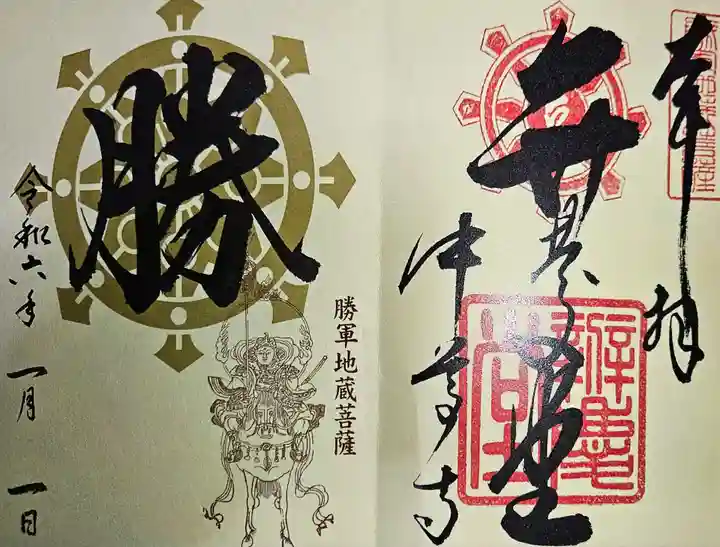 奉拝
弁慶堂
中尊寺
勝
勝軍地蔵菩薩
令和六年 一月 一日